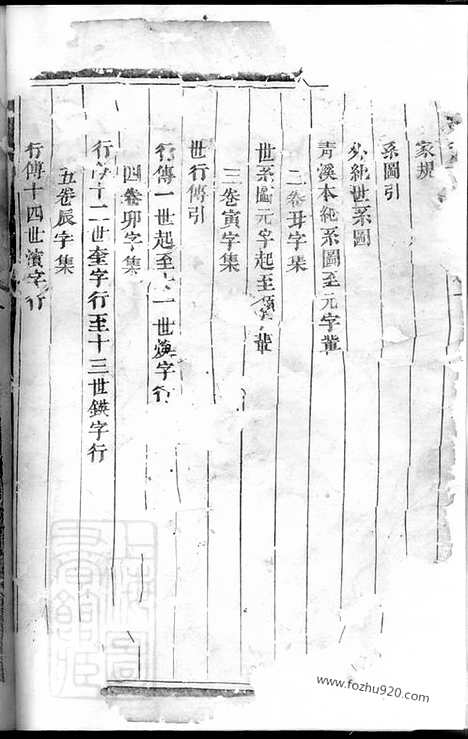 家規
系圖引
外純世系圖
青溪本純系圖至元字輩
二卷丑字集
世系圖元字起至 輩
三卷寅字集
世行傳引
行傳一世起至 一世 字行
四卷卯字集
行 十二世奎字行至十三世鍈字行
五卷辰字集
行傳十四世濱字行
www.fozhu920.com